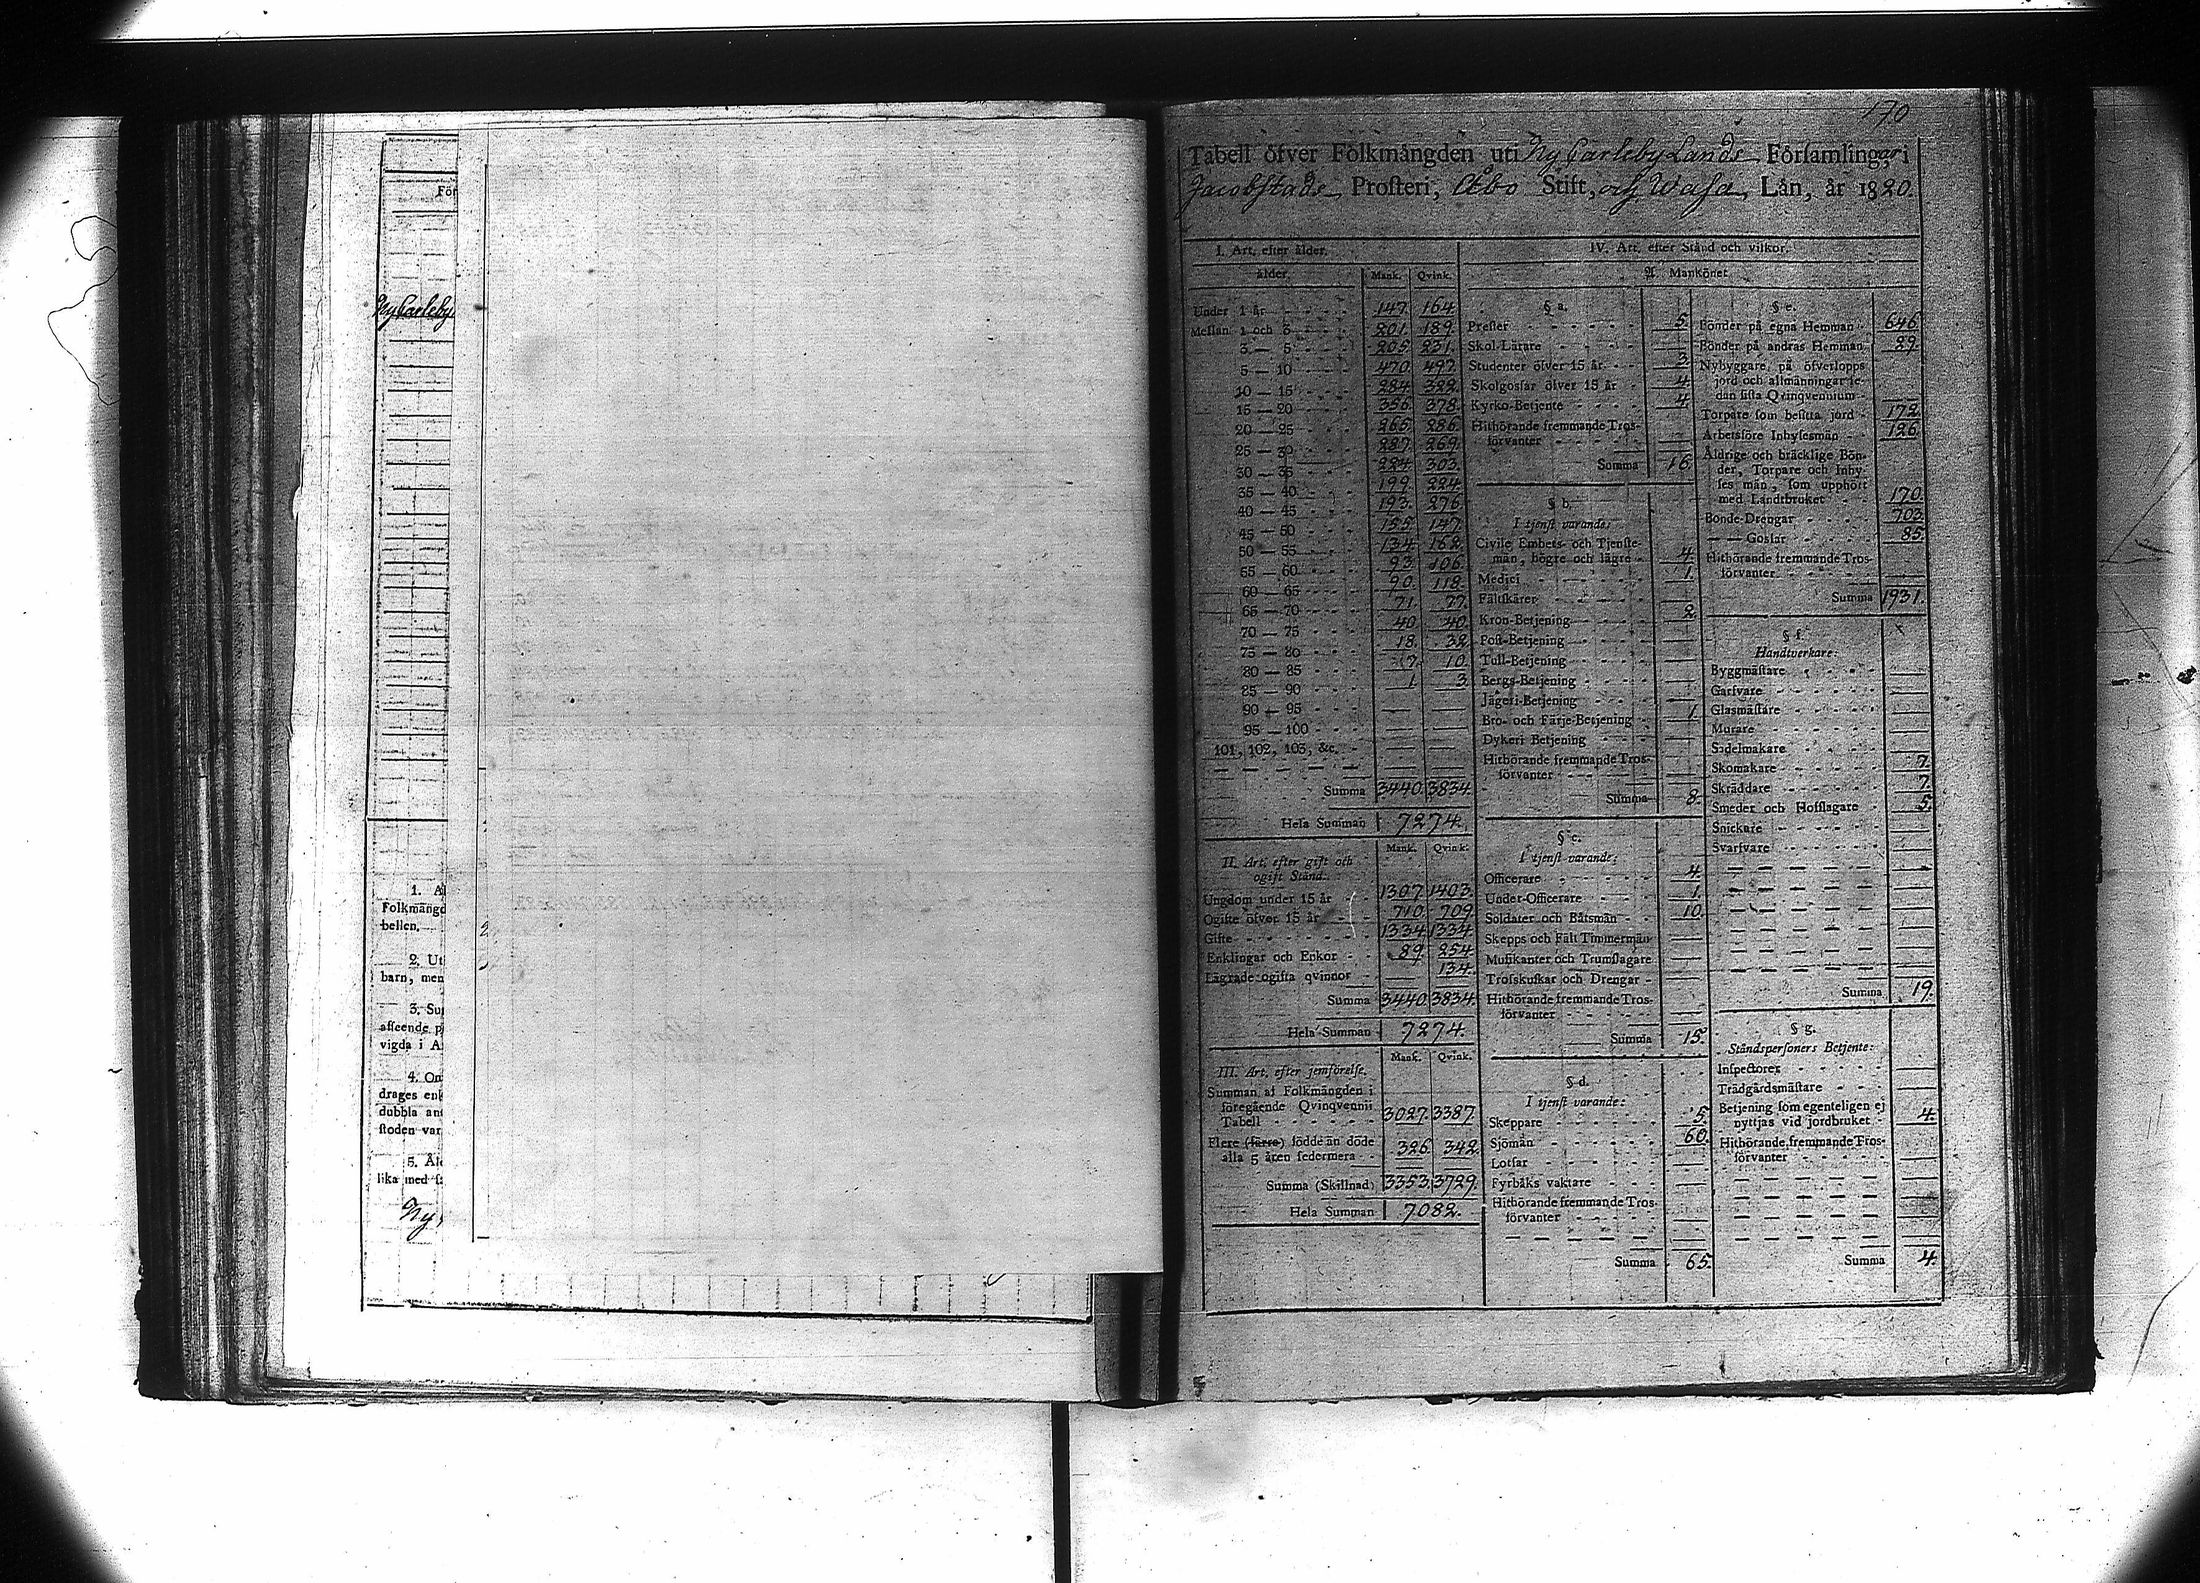 För
Ny Carleby
1. Al
Folkmängd
bellen.
2. Ut
barn, men
3. Su
afseende p
vigda i A
4. On
drages enk
dubbla ant
stoden var
5. Åld
lika med
Ny
190
Tabell öfver Folkmängden uti Ny Carleby Lands Församlingar i
Jacobstads Prosteri, Åbo Stift, och Wasa Län, år 1820.
I. Art, efter ålder.
ålder. Mank. Qvink.
Under 1 år 147. 164.
Mellan 1 och 3 201. 189.
3 — 5 205. 231.
5 — 10 470. 497.
10 — 15 284. 322.
15 — 20 356. 378.
20 — 25 265. 286.
25 — 30 287. 269.
30 — 35 224. 303.
35 — 40 199. 224.
40 — 45 193. 276.
45 — 50 155. 147.
50 — 55 134. 162.
55 — 60 93. 106.
60 — 65 90. 118.
65 — 70 71. 77.
70 — 75 40. 40.
75 — 80 18. 32.
80 — 85 7. 10.
85 — 90 1. 3.
90 — 95 — —
95 — 100 — —
101, 102, 103, &c. — —
Summa 3440. 3834.
Hela Summan 7274.
II. Art. efter gift och
ogift Stånd. Mank. Qvink.
Ungdom under 15 år 1307. 1403.
Ogifte öfver 15 år 710. 709.
Gifte 1334. 1334.
Enklingar och Enkor 89. 254.
Lägrade ogifta qvinnor 134.
Summa 3440. 3834.
Hela Summan 7274.
III. Art. efter jemförelse. Mank. Qvink.
Summan af Folkmängden i
föregående Qvinqvennii
Tabell 3027. 3387.
Flere (färre) födde än döde
alla 5 åren sedermera 326. 342.
Summa (Skillnad) 3353. 3729.
Hela Summan 7082.
IV. Art. efter Stånd och vilkor.
A Mankönet
§ a.
Prester 5.
Skol-Lärare —
Studenter öfver 15 år 3.
Skolgossar öfver 15 år 4.
Kyrko-Betjente 4.
Hithörande fremmande Tros-
förvanter —
Summa 16.
§ b.
I tjenst varande:
Civile Embets- och Tjenste-
män, högre och lägre 4.
Medici 1.
Fältskärer —
Kron-Betjening 2.
Post-Betjening —
Tull-Betjening —
Bergs-Betjening —
Jägeri-Betjening —
Bro- och Färje-Betjening 1.
Dykeri Betjening —
Hithörande fremmande Tros-
förvanter —
Summa 8.
§ c.
I tjenst varande:
Officerare 4.
Under-Officerare 1.
Soldater och Båtsmän 10.
Skepps och Fält Timmermän —
Musikanter och Trumslagare —
Trosskuskar och Drengar —
Hithörande fremmande Tros-
förvanter —
Summa 15.
§ d.
I tjenst varande:
Skeppare 5.
Sjömän 60.
Lotsar —
Fyrbåks vaktare —
Hithörande fremmande Tros-
förvanter —
Summa 65.
§ e.
Bönder på egna Hemman 646.
Bönder på andras Hemman 29.
Nybyggare, på öfverlopps
jord och allmänningar se-
dan sista Qvinqvennium —
Torpare som besitta jord 172.
Arbetsföre Inhysesmän 126.
Åldrige och bräcklige Bön-
der, Torpare och Inhy-
ses män, som upphört
med Landtbruket 170.
Bonde-Drengar 703.
— — Gossar 85.
Hithörande fremmande Tros-
förvanter —
Summa 1931.
§ f.
Handtverkare:
Byggmästare —
Garfvare —
Glasmästare —
Murare —
Sadelmakare —
Skomakare 7.
Skräddare 7.
Smeder och Hofslagare 5.
Snickare —
Svarfvare —
Summa 19.
§ g.
Ståndspersoners Betjente:
Inspectorer —
Trädgårdsmästare —
Betjening som egenteligen ej
nyttjas vid jordbruket 4.
Hithörande fremmande Tros-
förvanter —
Summa 4.